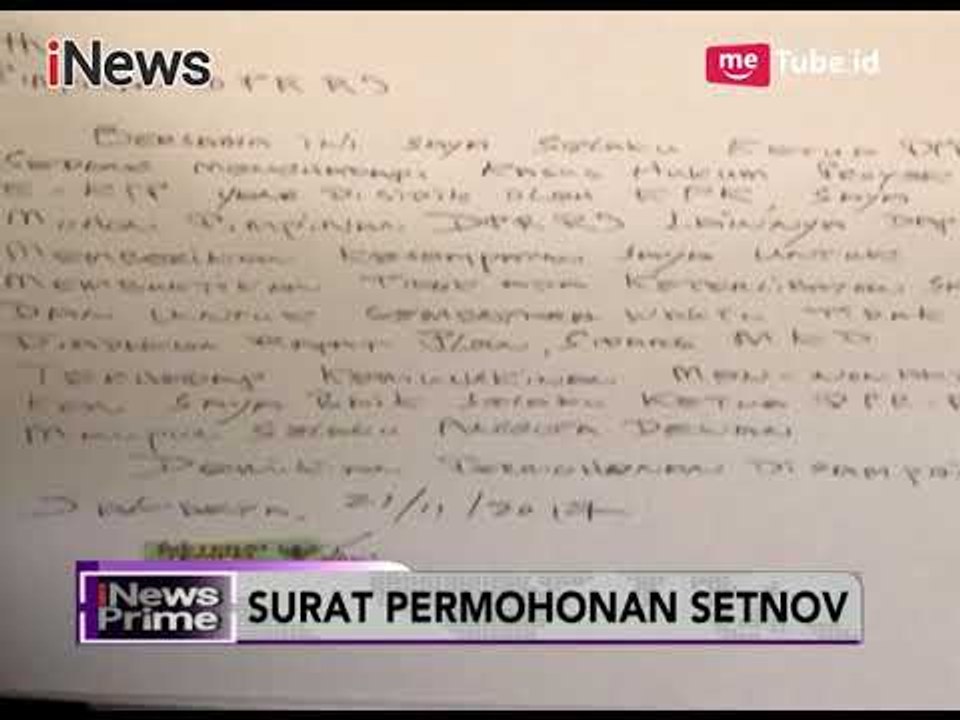 iNews
me Tube.id
DPR RI
Bersama ini saya selaku Ketua DPR
Sedang menghadapi kasus hukum proyek
E-KTP yang disidik oleh KPK, saya
Mohon Pimpinan DPR RI lainnya
Memberikan kesempatan saya untuk
Membuktikan tidak ada keterlibatan
Dan untuk sementara waktu tidak
Rapat Pleno, Sidang MKD
Terhadap kemungkinan
saya baik selaku Ketua DPR
Maupun selaku Anggota Dewan
Demikian permohonan
Jakarta, 21/11/2017
iNews
Prime
SURAT PERMOHONAN SETNOV